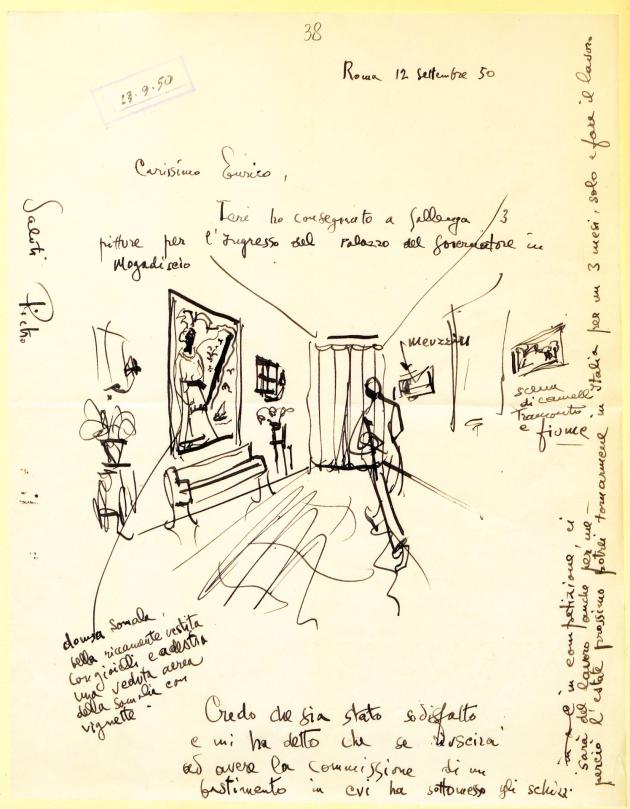 38
Roma 12 Settembre 50
13.9.50
Carissimo Enrico,
Ieri ho consegnato a Gallenga 3
pitture per l'Ingresso del Palazzo del Governatore in
Mogadiscio
scena
di camelli
tramonto
e fiume
donna Somala,
bella riccamente vestita
con gioielli e a destra
una veduta aerea
della Somalia con
vignette.
Credo che sia stato sodisfatto
e mi ha detto che se riuscira'
ad avere la commissione di un
bastimento in cui ha sottomesso gli schizzi
in competizione, ci
sarà del lavoro anche per me
perciò l'estate prossimo potrei tornarmene in Italia per un 3 mesi, solo e fare il lavoro
Saluti Pietro